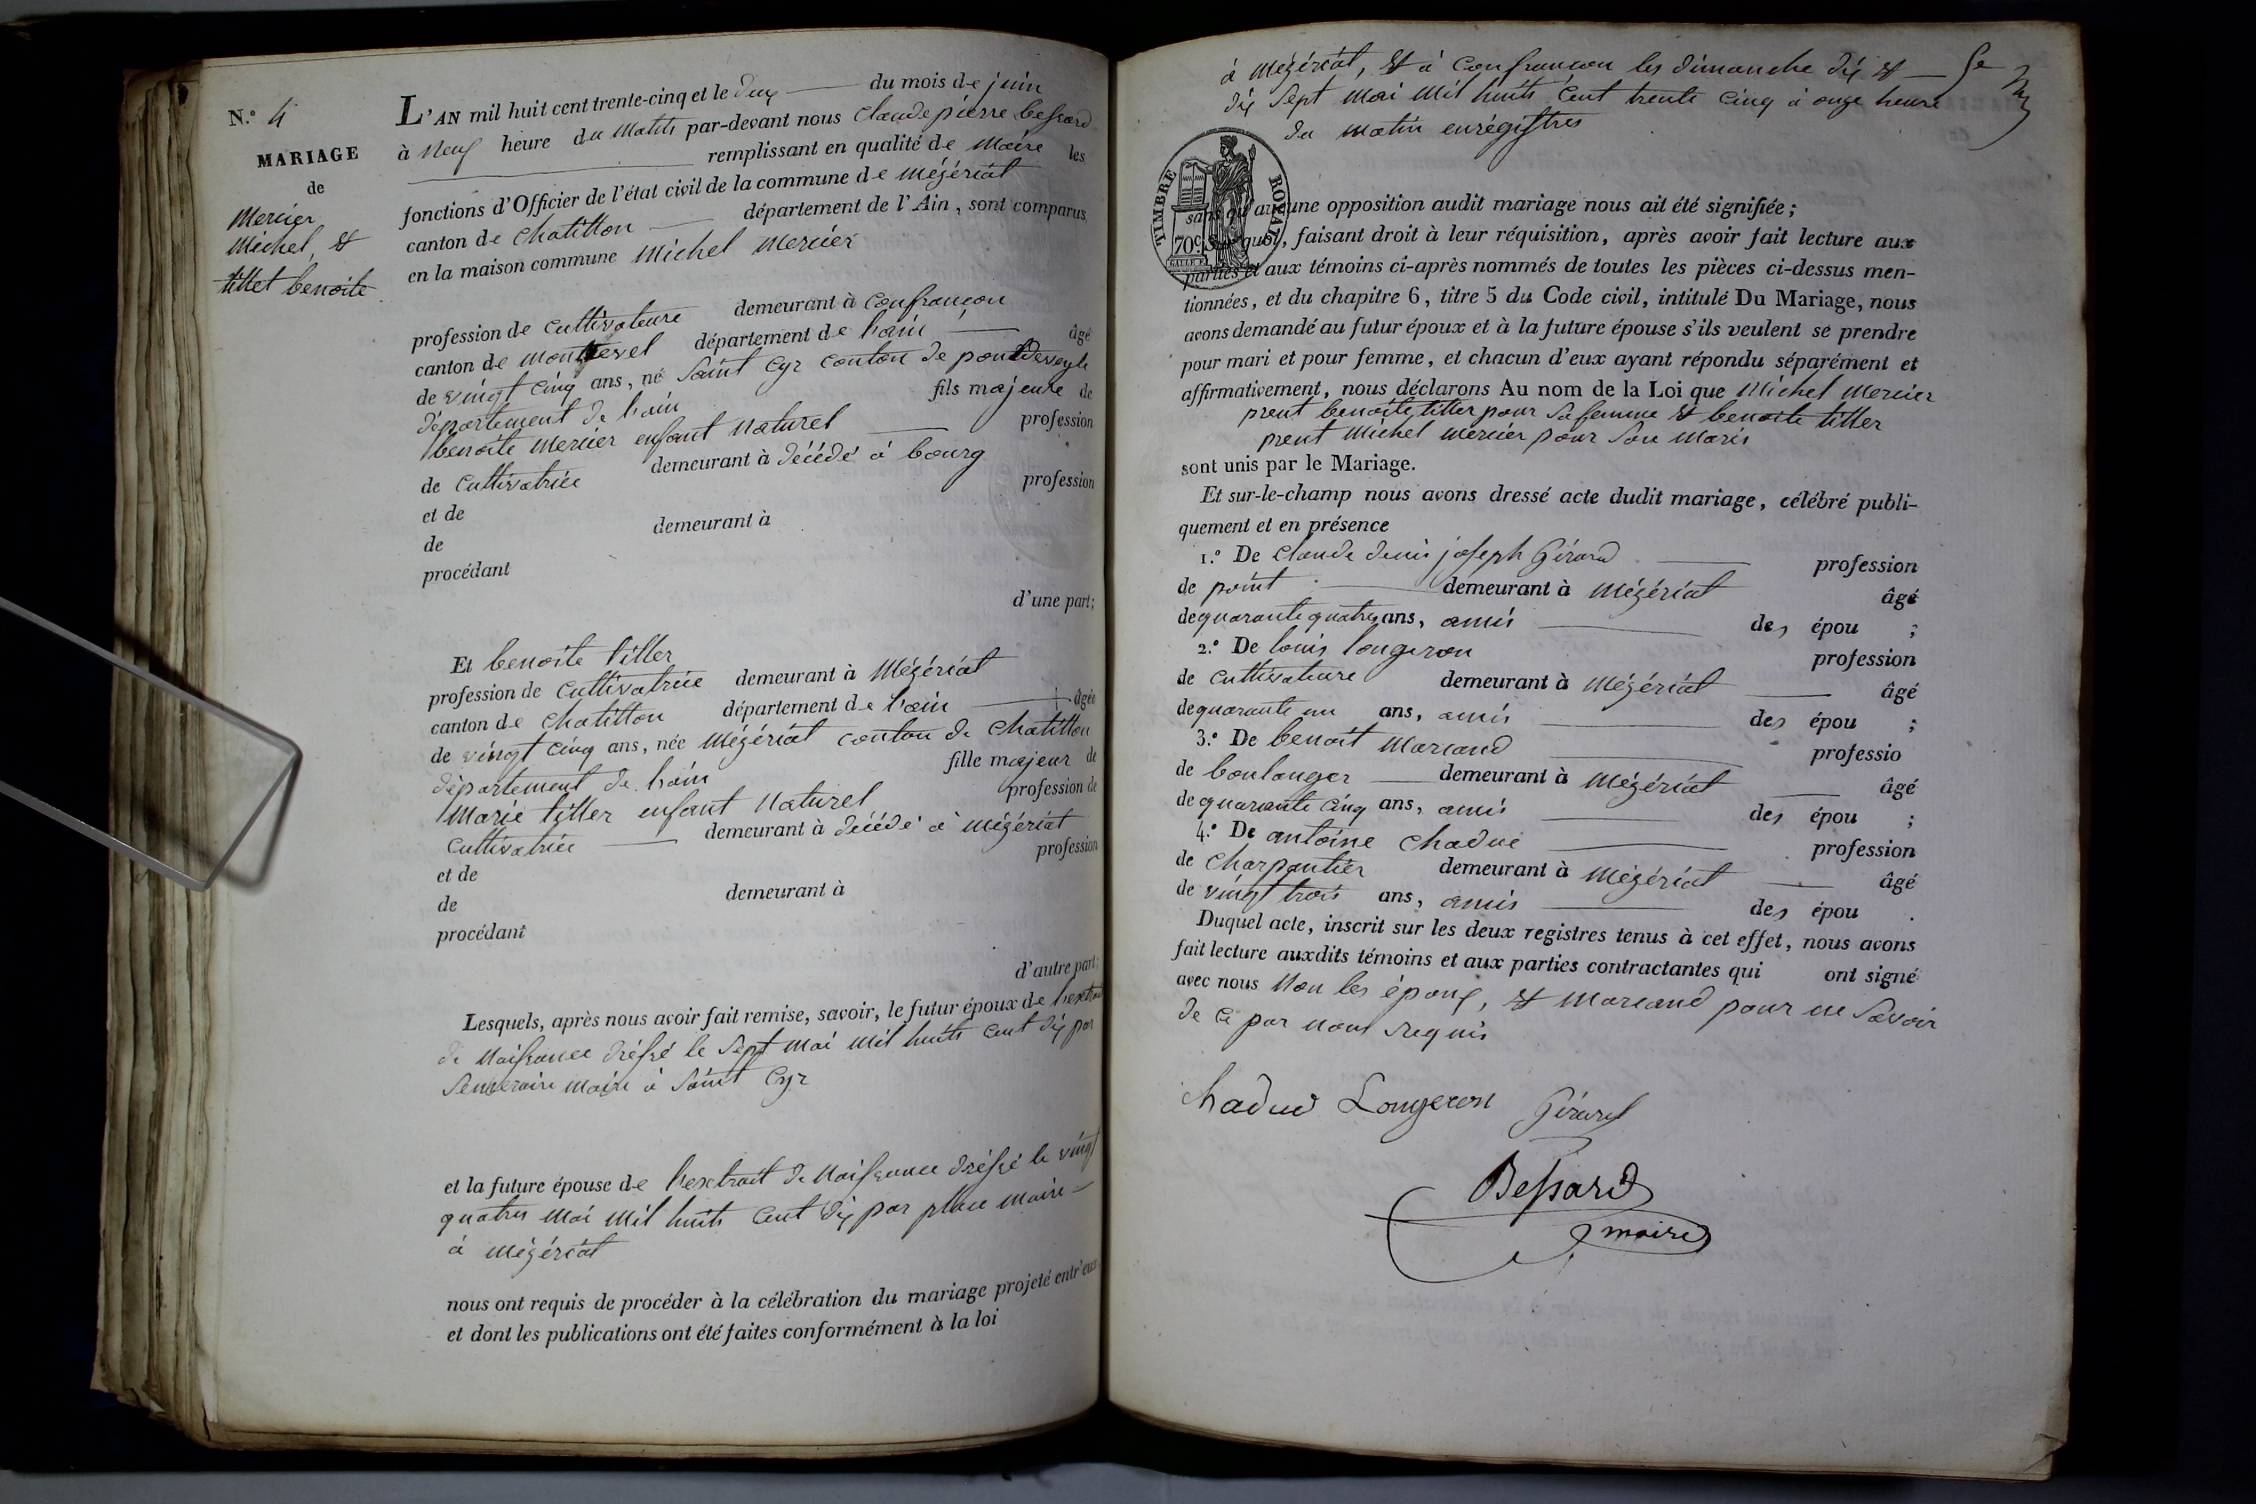 N.º 4
MARIAGE
de
Mercier
Michel, et
tillet benoite
L'AN mil huit cent trente-cinq et le deux du mois de juin
à neuf heure du matin par-devant nous claude pierre bessard
remplissant en qualité de maire les
fonctions d'Officier de l'état civil de la commune de mézériat
canton de chatillon département de l'Ain, sont comparus
en la maison commune michel mercier
profession de cultivateure demeurant à confrançon
canton de montrevel département de l'ain âgé
de vingt cinq ans, né saint cyr canton de pontdeveyle
département de l'ain fils majeure de
benoite mercier enfant naturel profession
de cultivatrice demeurant à décédé à bourg
et de profession
de demeurant à
procédant
d'une part;
Et benoite tiller
profession de cultivatrice demeurant à mézériat
canton de chatillon département de l'ain âgée
de vingt cinq ans, née mézériat canton de chatillon
département de l'ain fille majeur de
marie tiller enfant naturel profession de
cultivatrice demeurant à décédé à mézériat
et de profession
de demeurant à
procédant
d'autre part;
Lesquels, après nous avoir fait remise, savoir, le futur époux de l'extrait
de naissance dréssé le sept mai mil huits cent dix par
maire à saint cyr
et la future épouse de l'extrait de naissance dréssé le vingt
quatres mai mil huits cent dix par maire
à mézériat
nous ont requis de procéder à la célébration du mariage projeté entr'eux
et dont les publications ont été faites conformément à la loi
à mézériat, et à confrancon les dimanche dix et
dix sept mai mil huits cent trente cinq à onze heure
du matin enrégistres
TIMBRE ROYAL
70c
sans qu'aucune opposition audit mariage nous ait été signifiée;
Sur quoi, faisant droit à leur réquisition, après avoir fait lecture aux
parties et aux témoins ci-après nommés de toutes les pièces ci-dessus men-
tionnées, et du chapitre 6, titre 5 du Code civil, intitulé Du Mariage, nous
avons demandé au futur époux et à la future épouse s'ils veulent se prendre
pour mari et pour femme, et chacun d'eux ayant répondu séparément et
affirmativement, nous déclarons Au nom de la Loi que michel mercier
prent benoite tiller pour sa femme et benoite tiller
prent michel mercier pour son maris
sont unis par le Mariage.
Et sur-le-champ nous avons dressé acte dudit mariage, célébré publi-
quement et en présence
1.º De claude denis joseph Gérard profession
de point demeurant à mézériat âgé
de quarante quatres ans, amis des épou ;
2.º De louis longeron profession
de cultivateure demeurant à mézériat âgé
de quarante un ans, amis des épou ;
3.º De benoit marcand professio
de boulanger demeurant à mézériat âgé
de quarante cinq ans, amis des épou ;
4.º De antoine chadue profession
de charpantier demeurant à mézériat âgé
de vingt trois ans, amis des épou .
Duquel acte, inscrit sur les deux registres tenus à cet effet, nous avons
fait lecture auxdits témoins et aux parties contractantes qui ont signé
avec nous non les époux, et marcand pour ne savoir
de ce par nous requis
Chadue Longeron Gérard
Bessard
maire